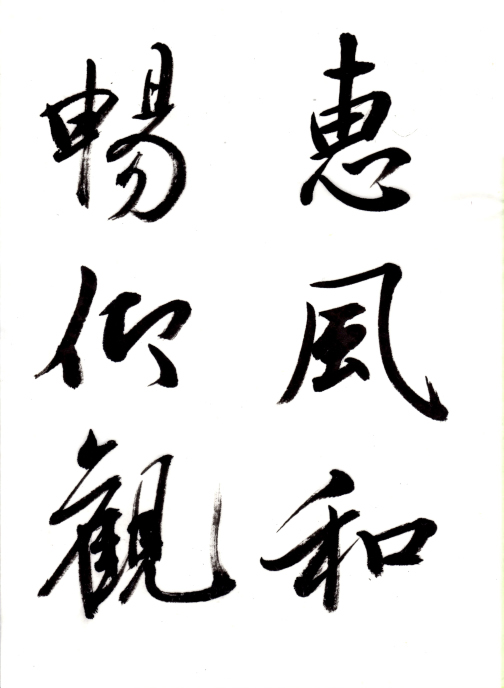 恵風和
暢仰観